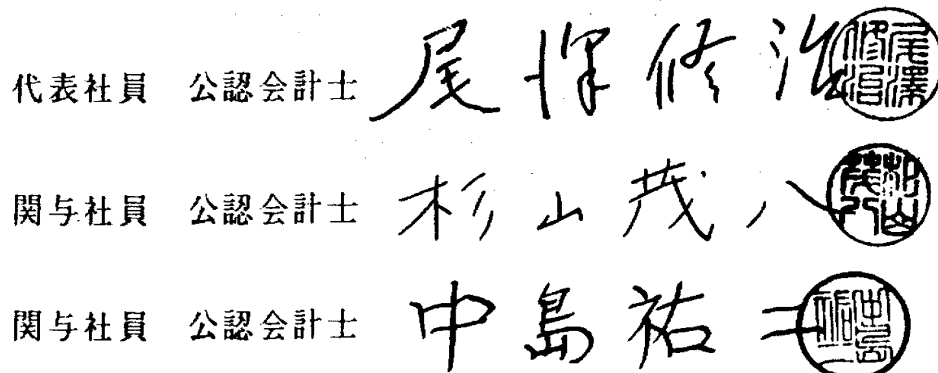 代表社員 公認会計士 尾澤修治
関与社員 公認会計士 杉山茂八
関与社員 公認会計士 中島祐二